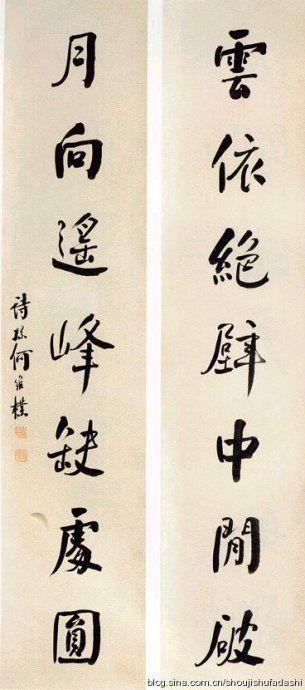 雲依絕壁中間破
月向遙峰缺處圓
詩孫何維樸
blog.sina.com.cn/shoujishufadashi